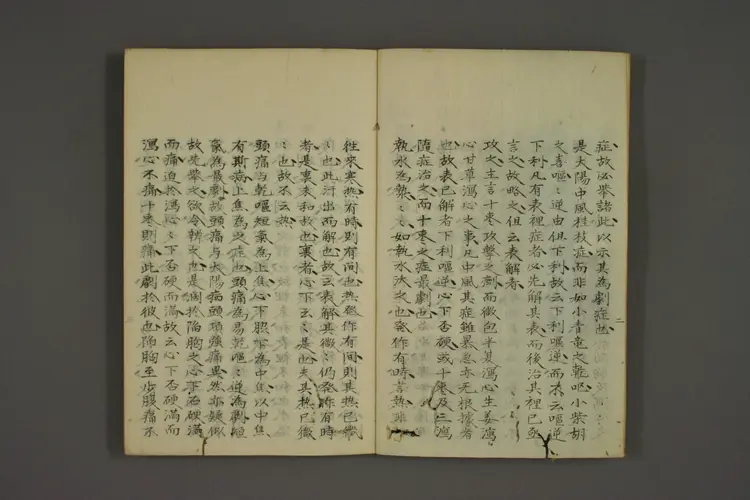 症故必挙諸此以示其為劇症也
是大陽中風桂枝症而非如小青竜之乾嘔小柴胡
之喜嘔嘔逆由但下利故云下利嘔逆而不云嘔逆
下利凡有表裡症者必先解其表而後治其裡已
言之故略之但云表解者
攻之主言十枣攻撃之剤而微包半夏瀉心生姜瀉
心甘草瀉心之事凡中風其症雖暴急亦无根據者
也故表已解者下利嘔逆心下否硬或十枣及三瀉
随症治之而十枣之症最劇也
漐水為熱如漐水汰之也発作有時言熱非
往来寒热有時則有間也热発作有間則其热已微
也此汗出而解也故云表解其微仍発作有時
者是裏未和故也裏者心下云是也夫其热已微
也故不云热
頭痛与乾嘔短氣為上焦心下股下為中焦以中焦
有斯病上焦為之症也頭痛為易乾嘔逆為劇短
氣為最劇故頭痛与大陽病頭項強痛異然亦疑似
故先挙之欲令辨之也是同於陥胸之心下否硬満
而痛迫於瀉心心下否硬而満故云心下否硬満而
瀉心不痛十枣則痛此劇於彼也陥胸至少腹痛不
二